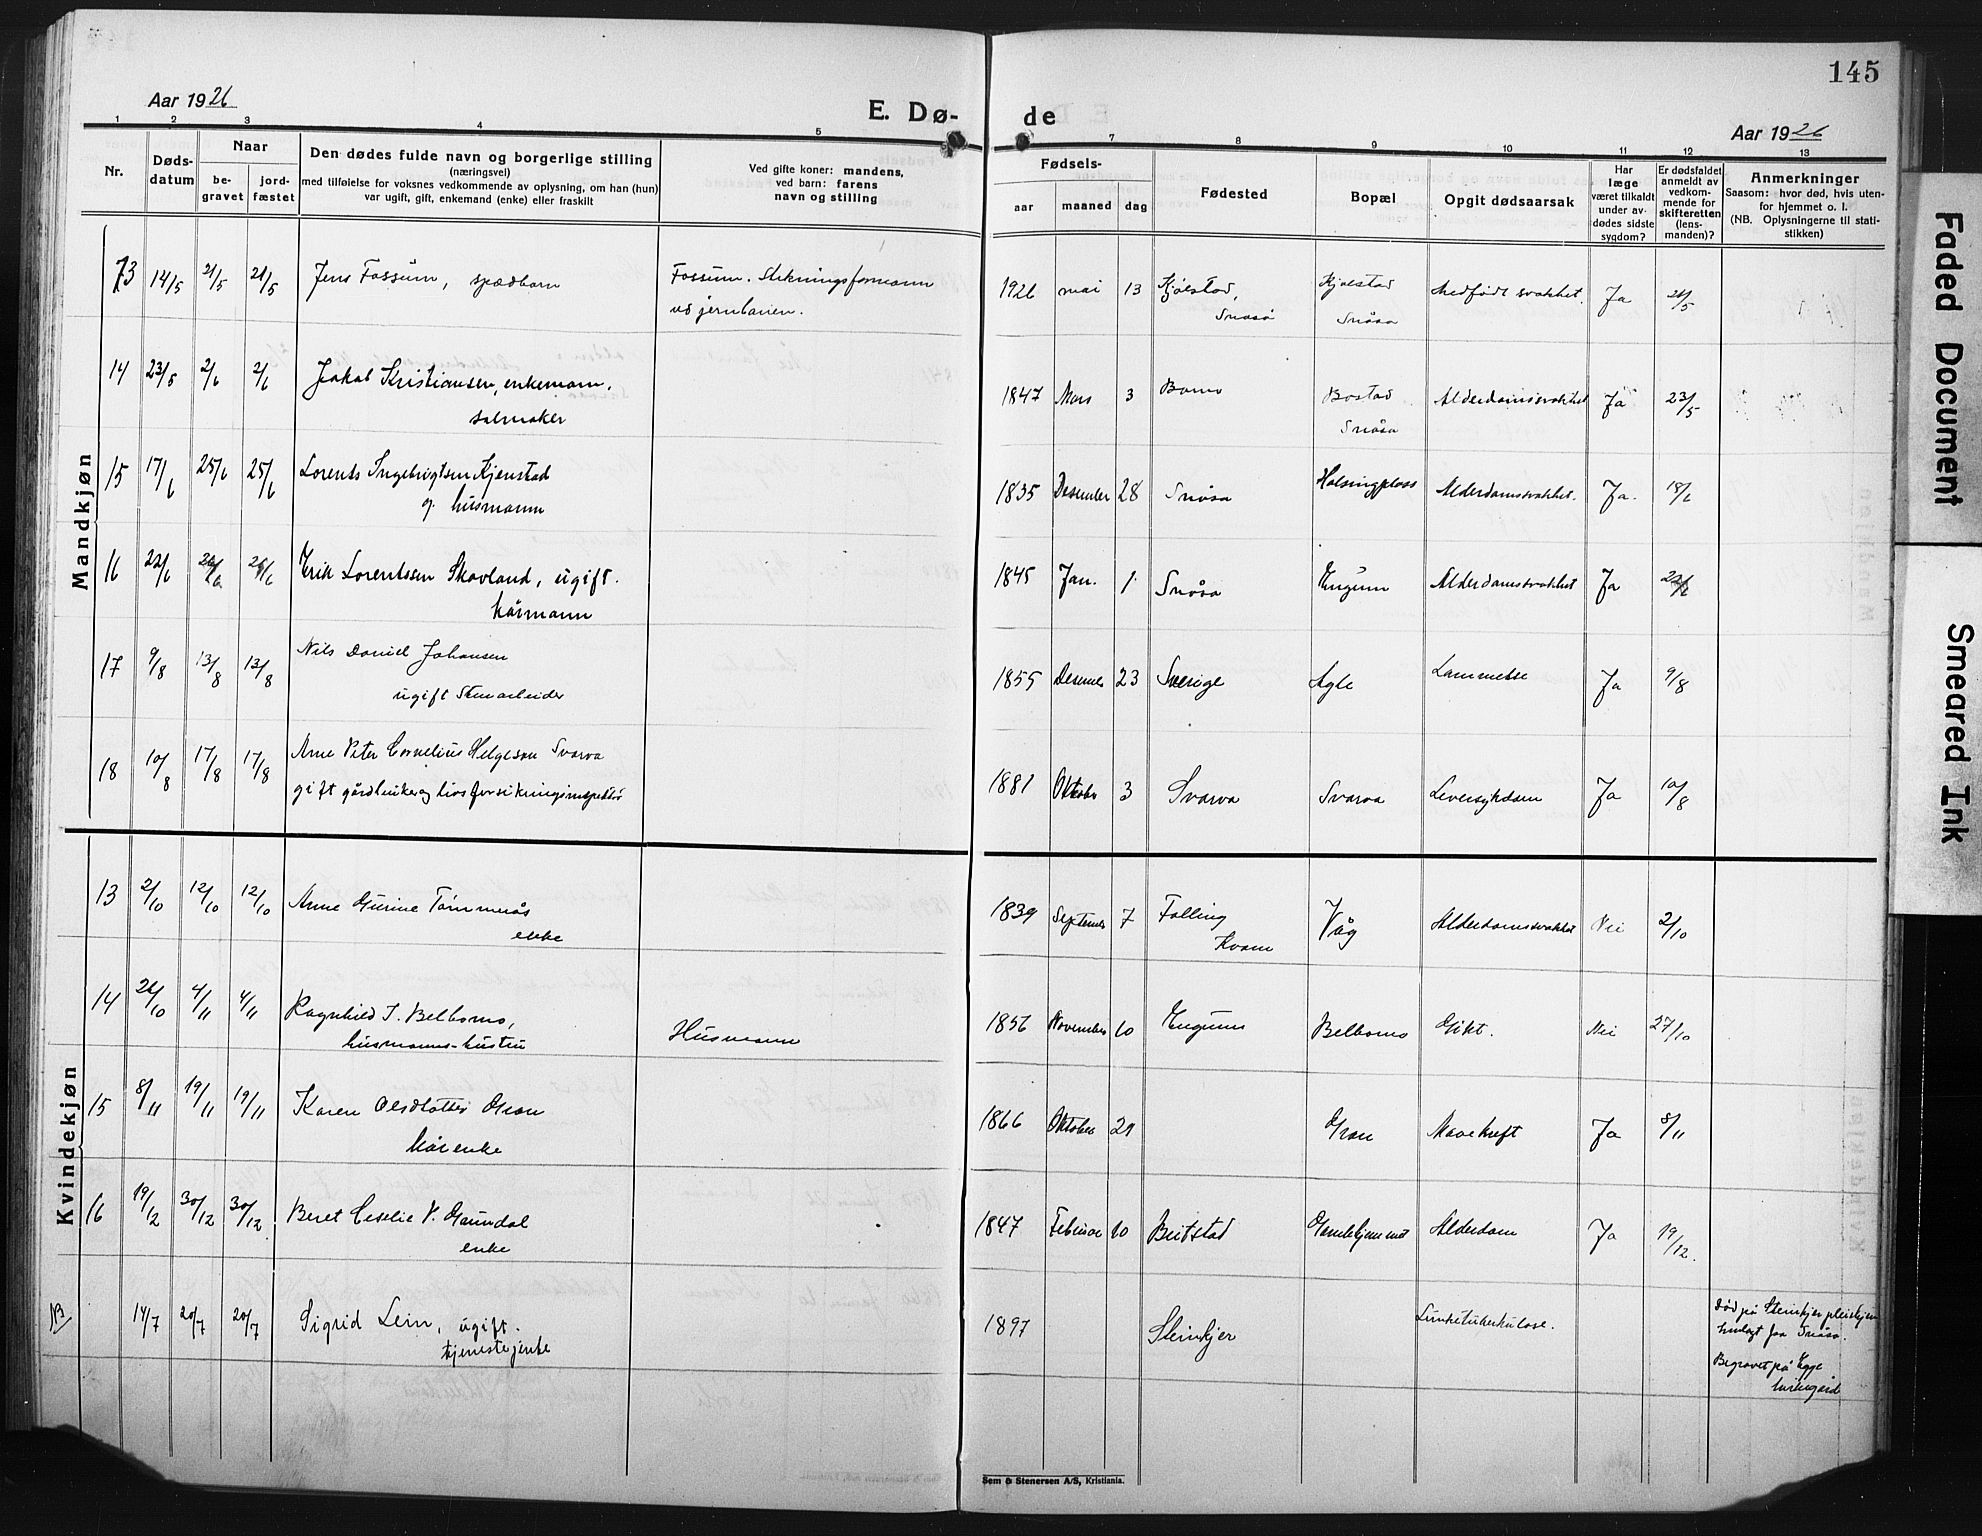 145
Aar 1926
E. Dø-
de
Aar 1926
1 2 3 4 5 7 8 9 10 11 12 13
Nr.
Døds-
datum
Naar
be-
gravet
jord-
fæstet
Den dødes fulde navn og borgerlige stilling
(næringsvei)
med tilføielse for voksnes vedkommende av oplysning, om han (hun)
var ugift, gift, enkemand (enke) eller fraskilt
Ved gifte koner: mandens,
ved barn: farens
navn og stilling
Fødsels-
aar maaned dag
Fødested
Bopæl
Opgit dødsaarsak
Har
læge
været tilkaldt
under av-
dødes sidste
sygdom?
Er dødsfaldet
anmeldt av
vedkom-
mende for
skifteretten
(lens-
manden)?
Anmerkninger
Saasom: hvor død, hvis uten-
for hjemmet o. l.
(NB. Oplysningerne til stati-
stikken)
Mandkjøn
13 14/5 21/5 21/5 Jens Fossum, spædbarn Fossum. Stikningsformann 1926 mai 13 Kjølstad, Kjølstad Medfødt svakhet. Ja 21/5
ved jernbanen. Snåsa Snåsa
14 23/5 2/6 2/6 Jakob Kristiansen, enkemann, 1847 Mars 3 Bomo Bostad Alderdomssvakhet Ja 23/5
salmaker Snåsa
15 17/6 25/6 25/6 Lorents Ingebrigtsen Kjenstad 1835 Desember 28 Snåsa Holsingplass Alderdomssvakhet. Ja. 18/6
g. husmann
16 22/6 26/6 26/6 Erik Lorentssen Skavland, ugift. 1845 Jan. 1. Snåsa Engum Alderdomssvakhet Ja 22/6
kårmann
17 9/8 13/8 13/8 Nils Daniel Johansen 1855 Desember 23 Sverige Agle Lammelse Ja 9/8
ugift Stenarbeider
18 10/8 17/8 17/8 Arne Peter Cornelius Helgesen Svarva 1881 Oktober 3 Svarva Svarva Leversykdom Ja 10/8
gift gårdbruker og livsforsikringsinspektør
Kvindekjøn
13 2/10 12/10 12/10 Anne Gurine Tømmerås 1839 September 7 Følling Våg Alderdomssvakhet Nei 2/10
enke Kvam
14 26/10 4/11 4/11 Ragnhild J. Belbomo, Husmann 1856 November 10 Engum Belbomo Gikt. Nei 27/10
husmanns-hustru
15 8/11 19/11 19/11 Karen Olsdotter Gran 1866 Oktober 29 Gran Mavekreft Ja 8/11
kårenke
16 19/12 30/12 30/12 Beret Ceselie P. Grundal 1847 Februar 10 Beitstad Gamlehjemmet Alderdom Ja 19/12.
enke
NB 14/7 20/7 20/7 Sigrid Lein, ugift. 1897 Steinkjer Lungetuberkulose. Død på Steinkjer pleiehjem
tjenestejente innlagt fra Snåsa.
Begravet på Egge
kirkegård
Sem & Stenersen A/S, Kristiania.
Faded Document
Smeared Ink